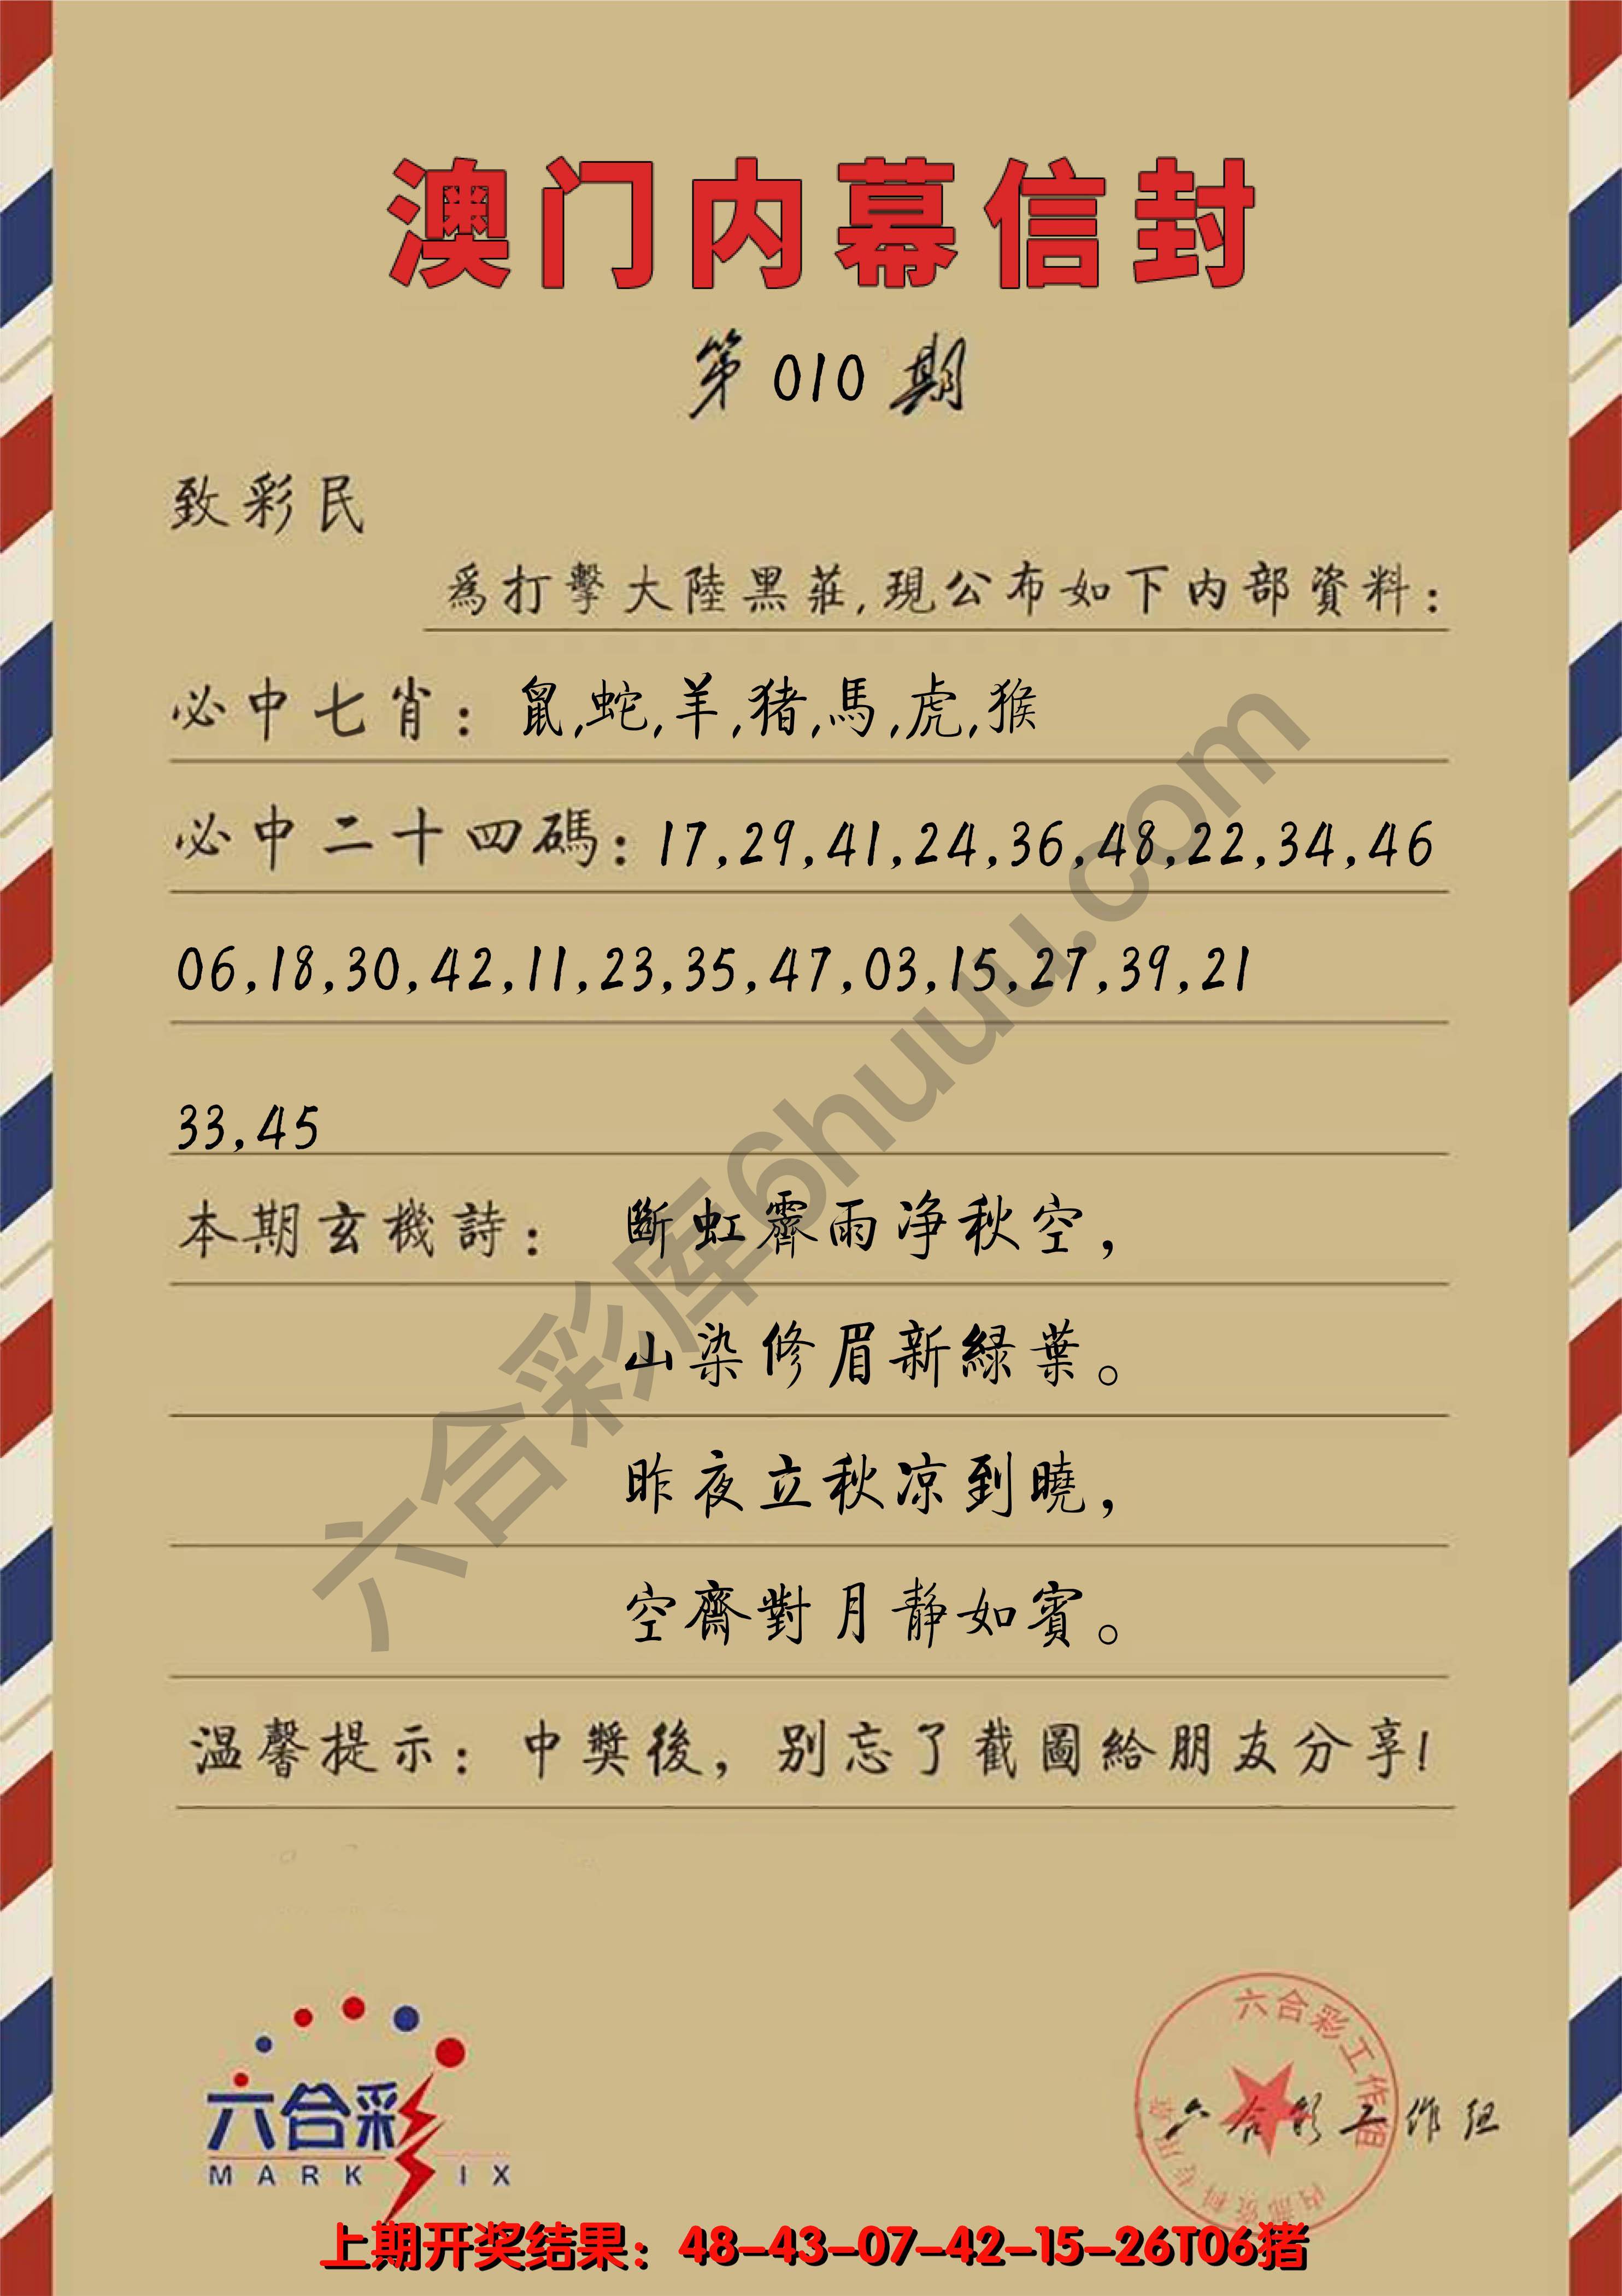 澳门内幕信封
第010期
致彩民
爲打擊大陸黑莊,現公布如下内部資料:
必中七肖: 鼠,蛇,羊,猪,馬,虎,猴
必中二十四碼: 17,29,41,24,36,48,22,34,46
06,18,30,42,11,23,35,47,03,15,27,39,21
33,45
本期玄機詩: 斷虹霽雨净秋空,
山染修眉新緑葉。
昨夜立秋凉到曉,
空齋對月静如賓。
温馨提示: 中獎後, 别忘了截圖給朋友分享!
六合彩库6huuu.com
六合彩
MARK IX
六合彩工作组
六合彩工作组
上期开奖结果: 48-43-07-42-15-26T06猪